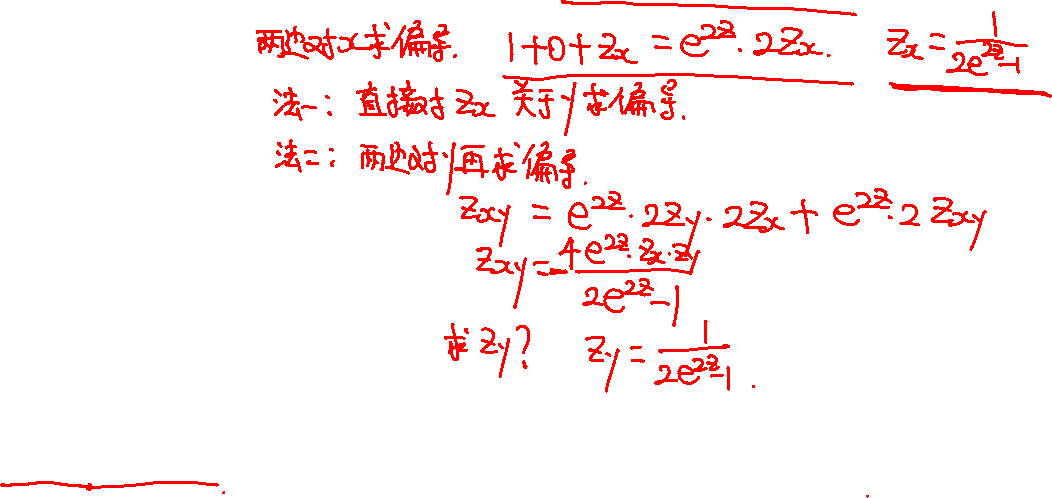 两边对x求偏导. 1+0+Zx = e^{2z}·2Zx. Zx = \frac{1}{2e^{2z}-1}
法一: 直接对Zx关于y求偏导.
法二: 两边对y再求偏导.
Zxy = e^{2z}·2Zy·2Zx + e^{2z}·2Zxy
Zxy = -\frac{4e^{2z}·Zx·Zy}{2e^{2z}-1}
求Zy? Zy = \frac{1}{2e^{2z}-1}.